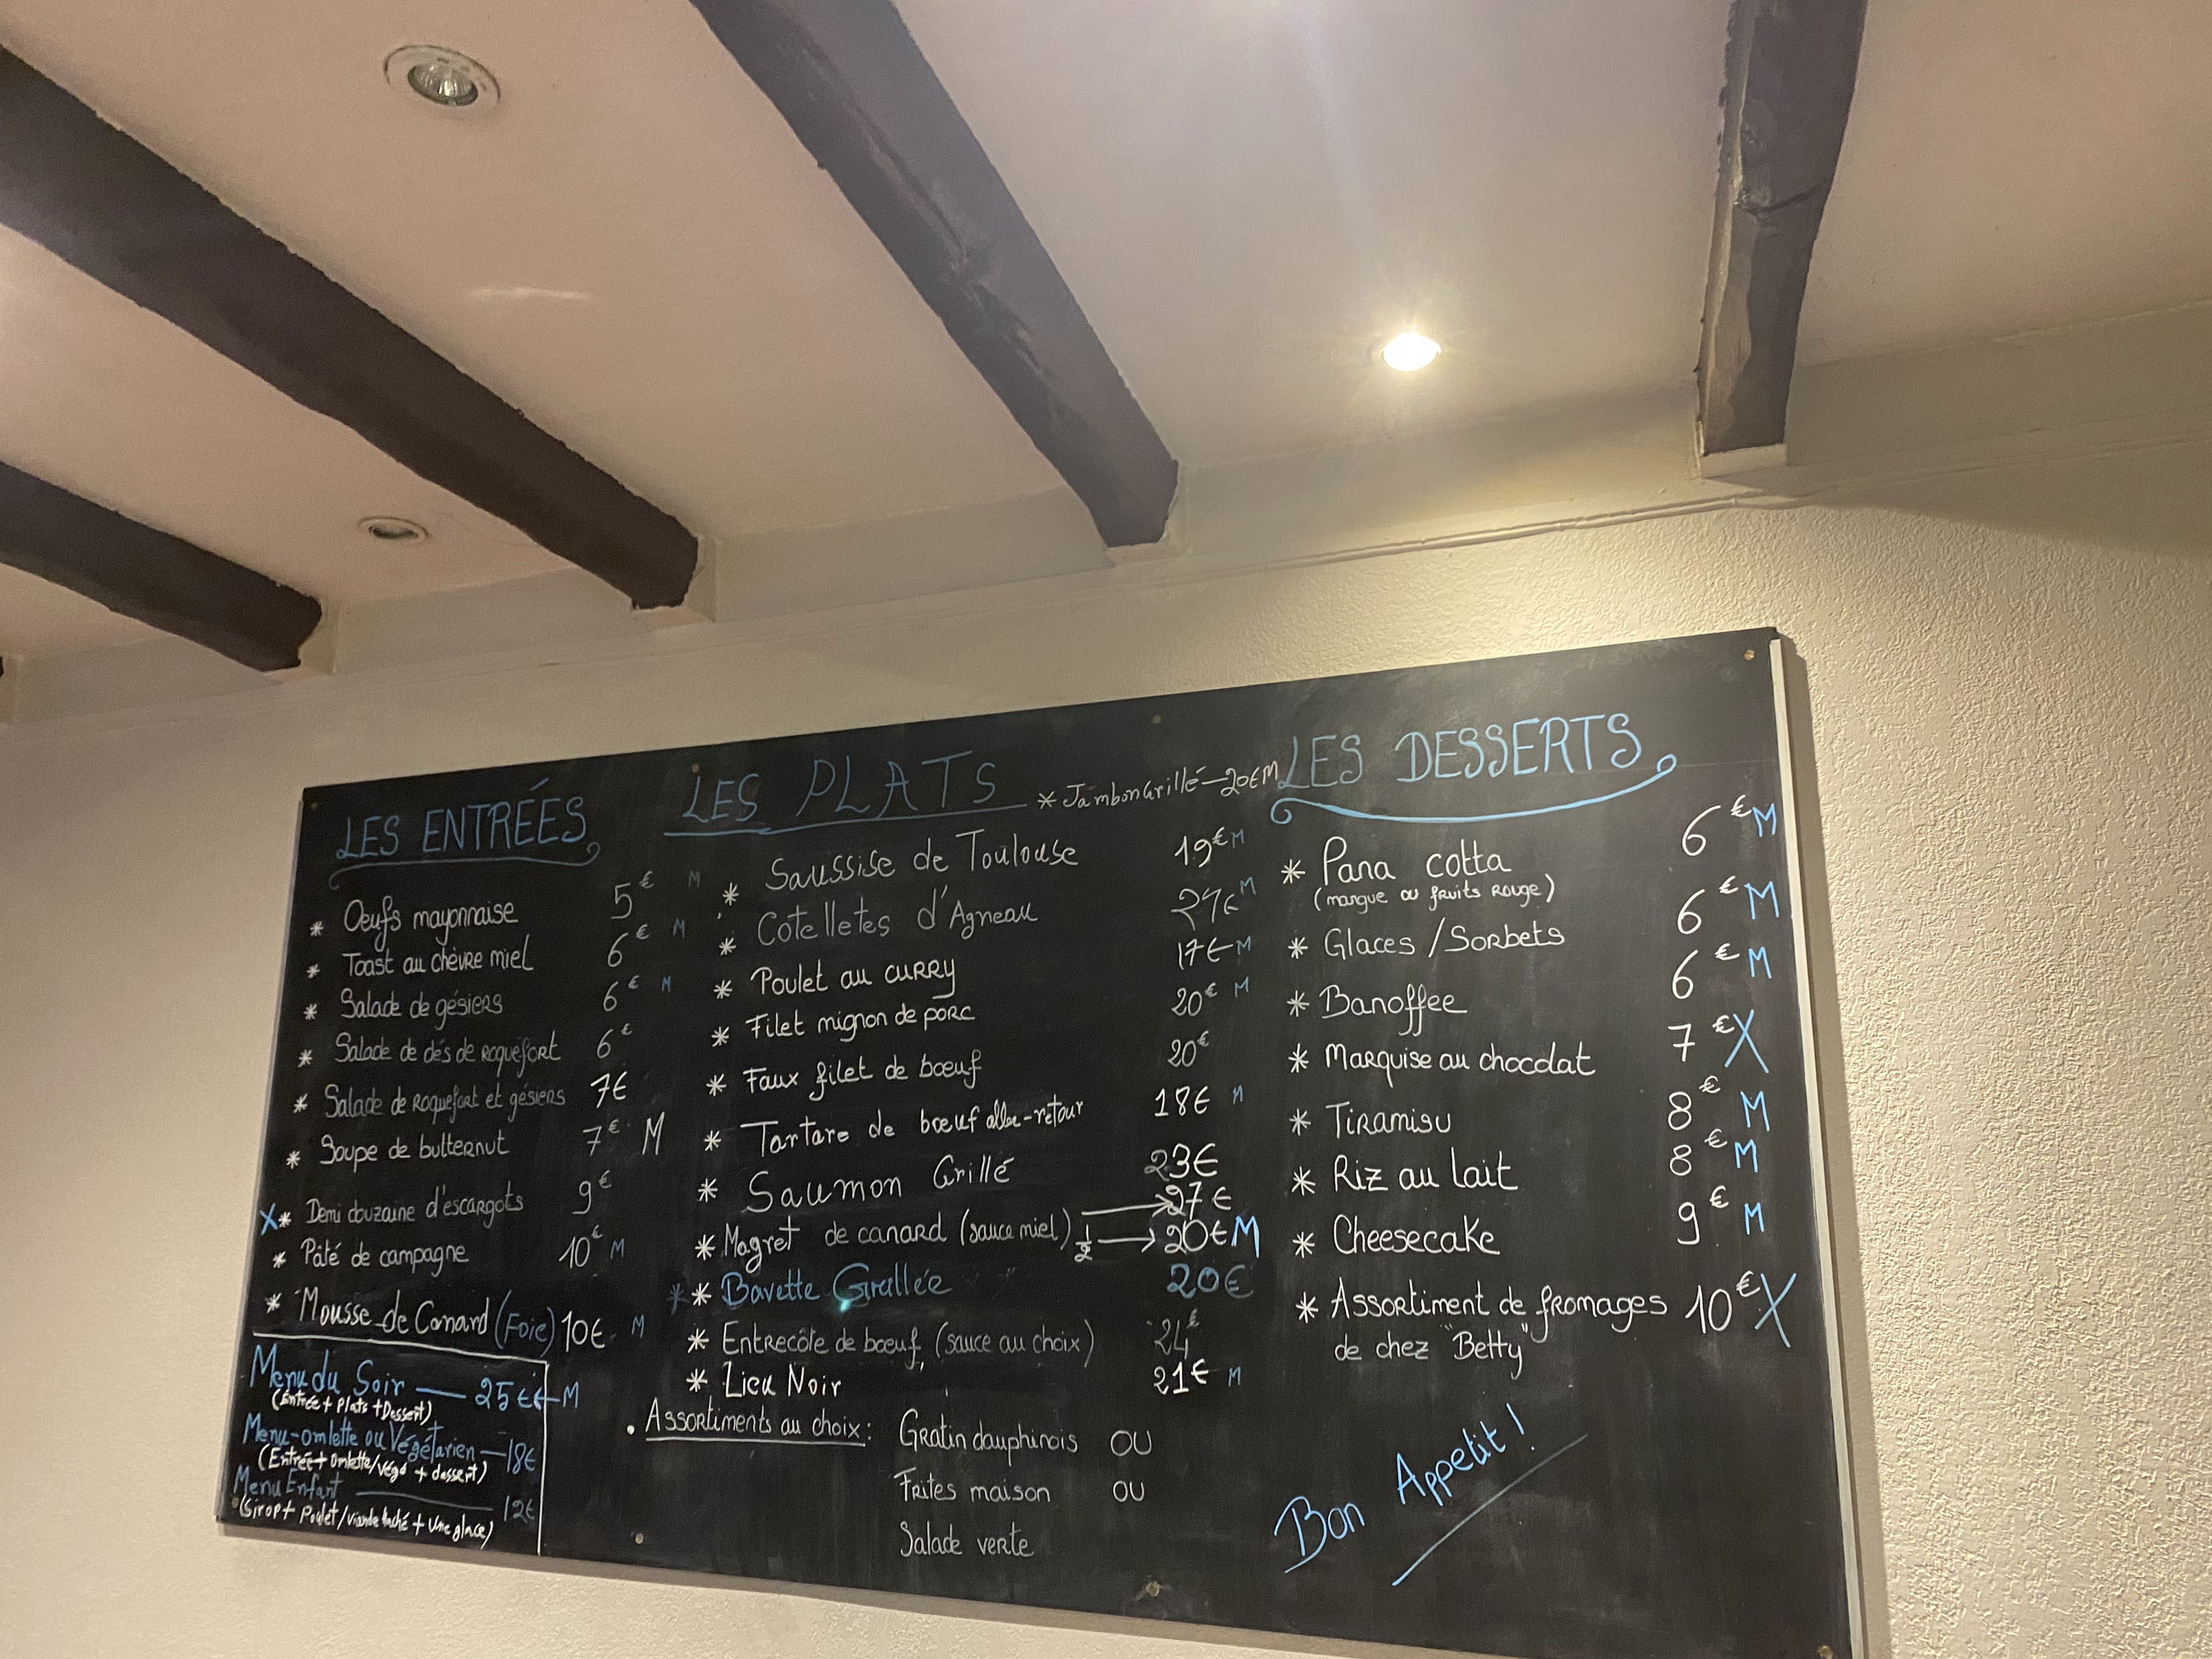 LES ENTRÉES
* Oeufs mayonnaise 5€ M
* Toast au chèvre miel 6€ M
* Salade de gésiers 6€ M
* Salade de dés de roquefort 6€
* Salade de roquefort et gésiers 7€
* Soupe de butternut 7€ M
X* Demi douzaine d'escargots 9€
* Pâté de campagne 10€ M
* Mousse de Canard (Foie) 10€ M
Menu du Soir — 25€ ← M
(Entrée + Plats + Dessert)
Menu-omlette ou Végétarien — 18€
(Entrée + omlette/végé + dessert)
Menu Enfant — 12€
(Sirop + Poulet/viande haché + une glace)
LES PLATS
* Jambon Grillé — 20€ M
* Saussise de Toulouse 19€ M
* Cotelletes d'Agneau € M
* Poulet au curry 17€ M
* Filet mignon de porc 20€ M
* Faux filet de bœuf 20€
* Tartare de bœuf aller-retour 18€ M
* Saumon Grillé 23€
* Magret de canard (sauce miel) → 27€
1/2 → 20€ M
** Bavette Grallée 20€
* Entrecôte de bœuf, (sauce au choix) 24€
* Lieu Noir 21€ M
. Assortiments au choix : Gratin dauphinois OU
Frites maison OU
Salade verte
LES DESSERTS
* Pana cotta 6€ M
(mangue ou fruits rouge)
* Glaces / Sorbets 6€ M
* Banoffee 6€ M
* Marquise au chocolat 7€ X
* Tiramisu 8€ M
* Riz au lait 8€ M
* Cheesecake 9€ M
* Assortiment de fromages 10€ X
de chez "Betty"
Bon Appetit !